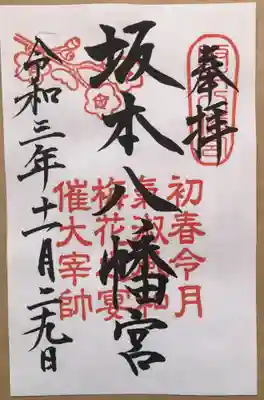 奉拝
坂本八幡宮
令和三年十一月二九日
初春令月
氣淑和
梅花宴
催大宰帥